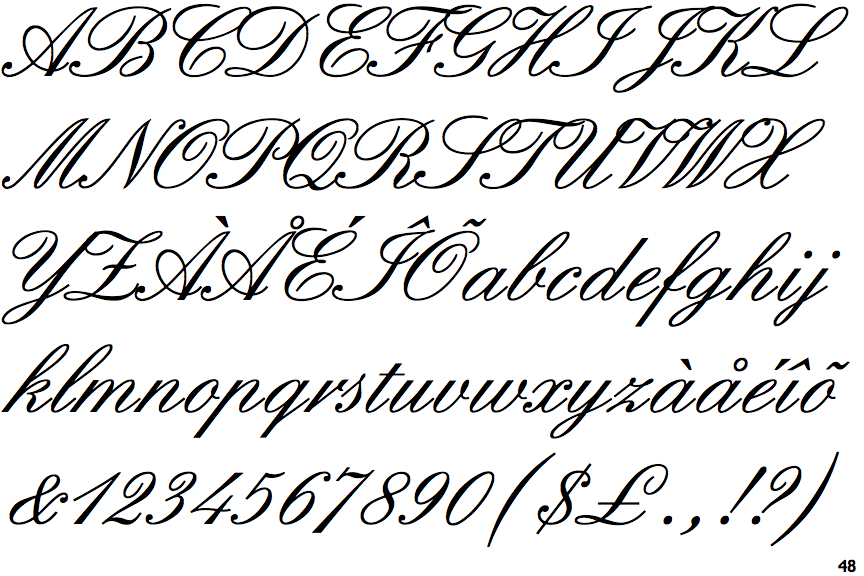 ABCDEFGHIJKL
MNOPQRSTUVWX
YZÀÅÉÎÕabcdefghij
klmnopqrstuvwxyzàåéîõ
&1234567890($£.,!?)
48